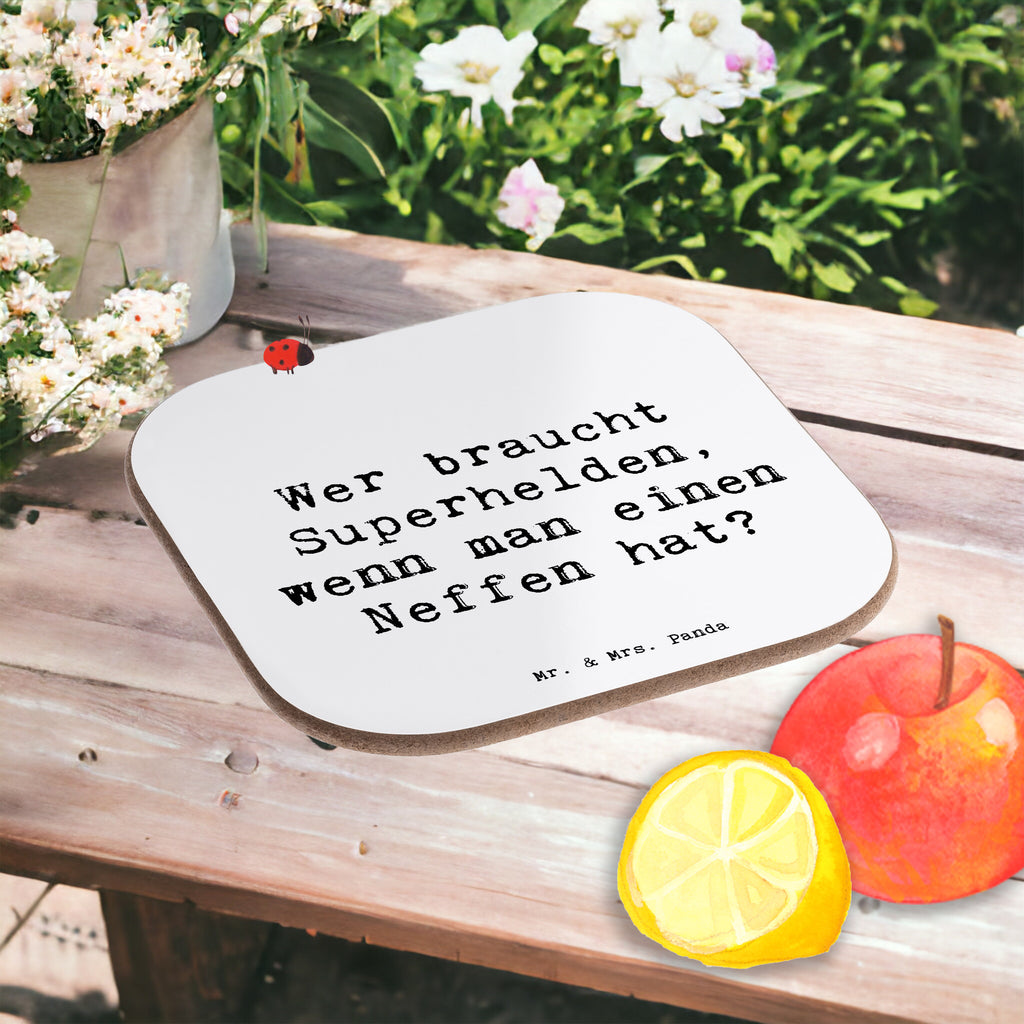 Wer braucht
Superhelden,
wenn man einen
Neffen hat?
Mr. & Mrs. Panda